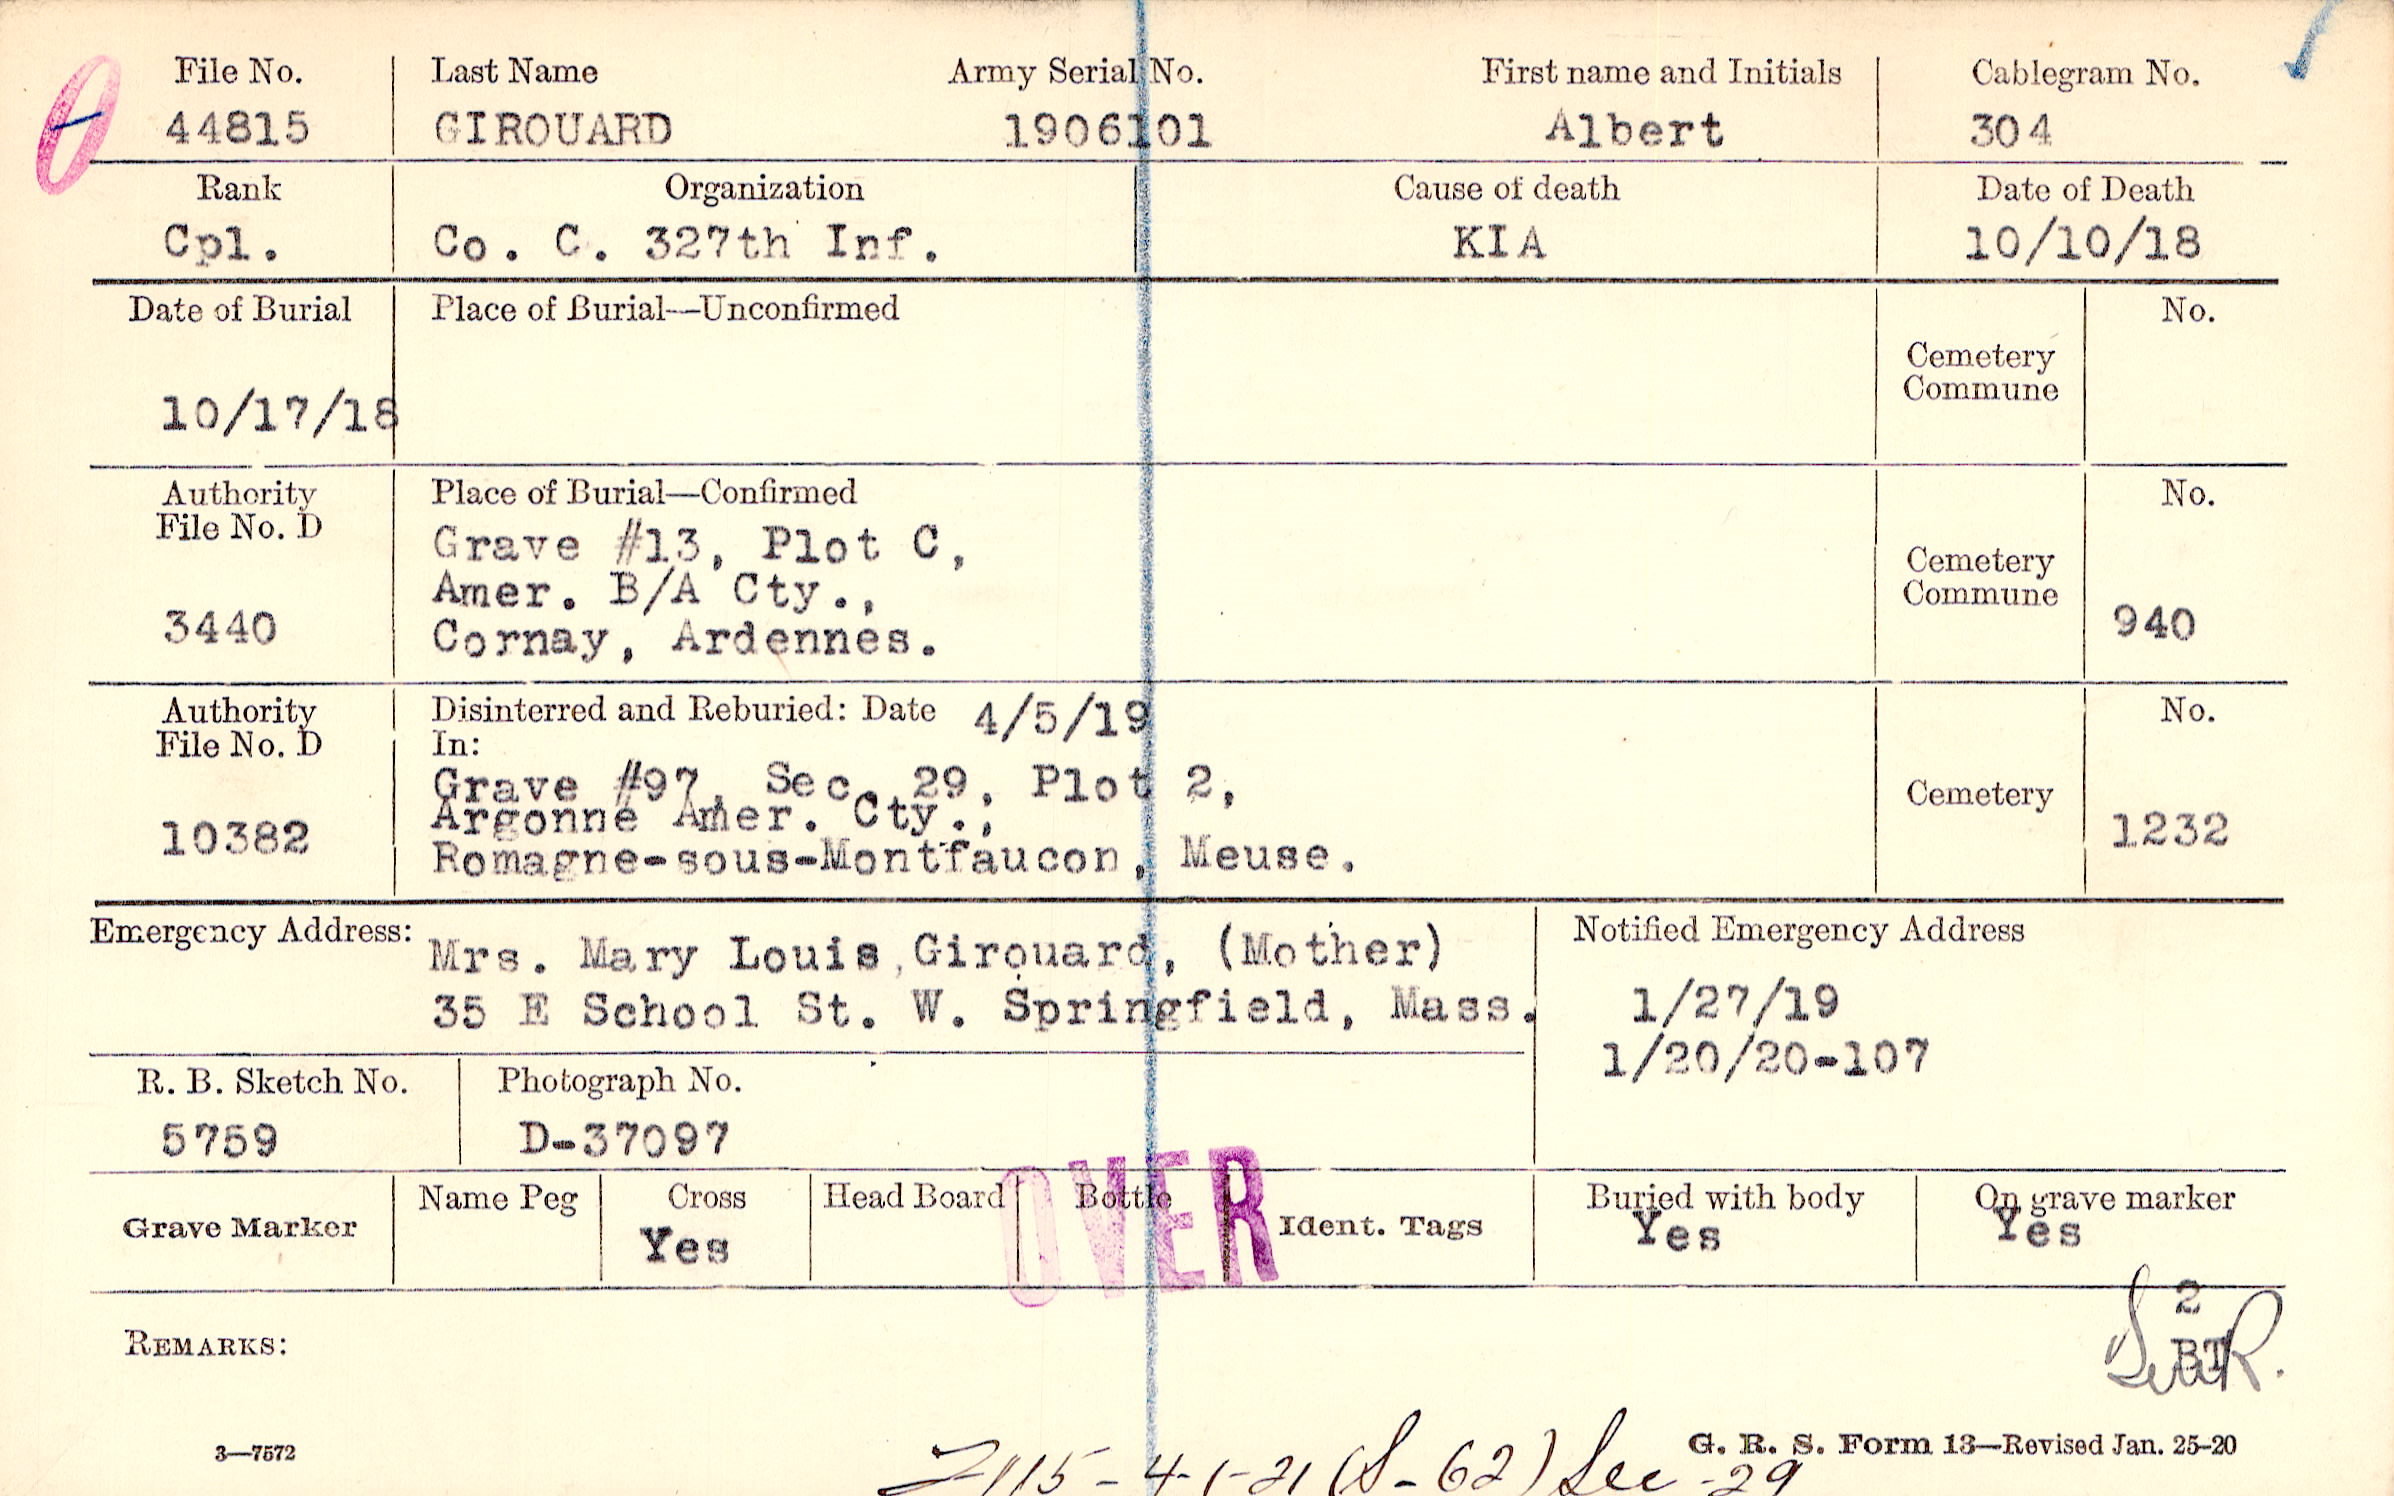 File No. Last Name Army Serial No. First name and Initials Cablegram No.
44815 GIROUARD 1906101 Albert 304
Rank Organization Cause of death Date of Death
Cpl. Co. C. 327th Inf. KIA 10/10/18
Date of Burial Place of Burial—Unconfirmed No.
Cemetery
Commune
10/17/18
Authority Place of Burial—Confirmed No.
File No. D
Grave #13, Plot C,
Amer. B/A Cty., Cemetery
Commune
3440 Cornay, Ardennes. 940
Authority Disinterred and Reburied: Date 4/5/19 No.
File No. D In:
Grave #97, Sec. 29, Plot 2, Cemetery
Argonne Amer. Cty.,
10382 Romagne-sous-Montfaucon, Meuse. 1232
Emergency Address: Notified Emergency Address
Mrs. Mary Louis, Girouard, (Mother)
35 E School St. W. Springfield, Mass. 1/27/19
1/20/20-107
R. B. Sketch No. Photograph No.
5759 D-37097
OVER
Grave Marker Name Peg Cross Head Board Bottle Ident. Tags Buried with body On grave marker
Yes Yes Yes
2
BT
REMARKS:
3—7572 G. R. S. Form 13—Revised Jan. 25-20
(S-62) Sec-29